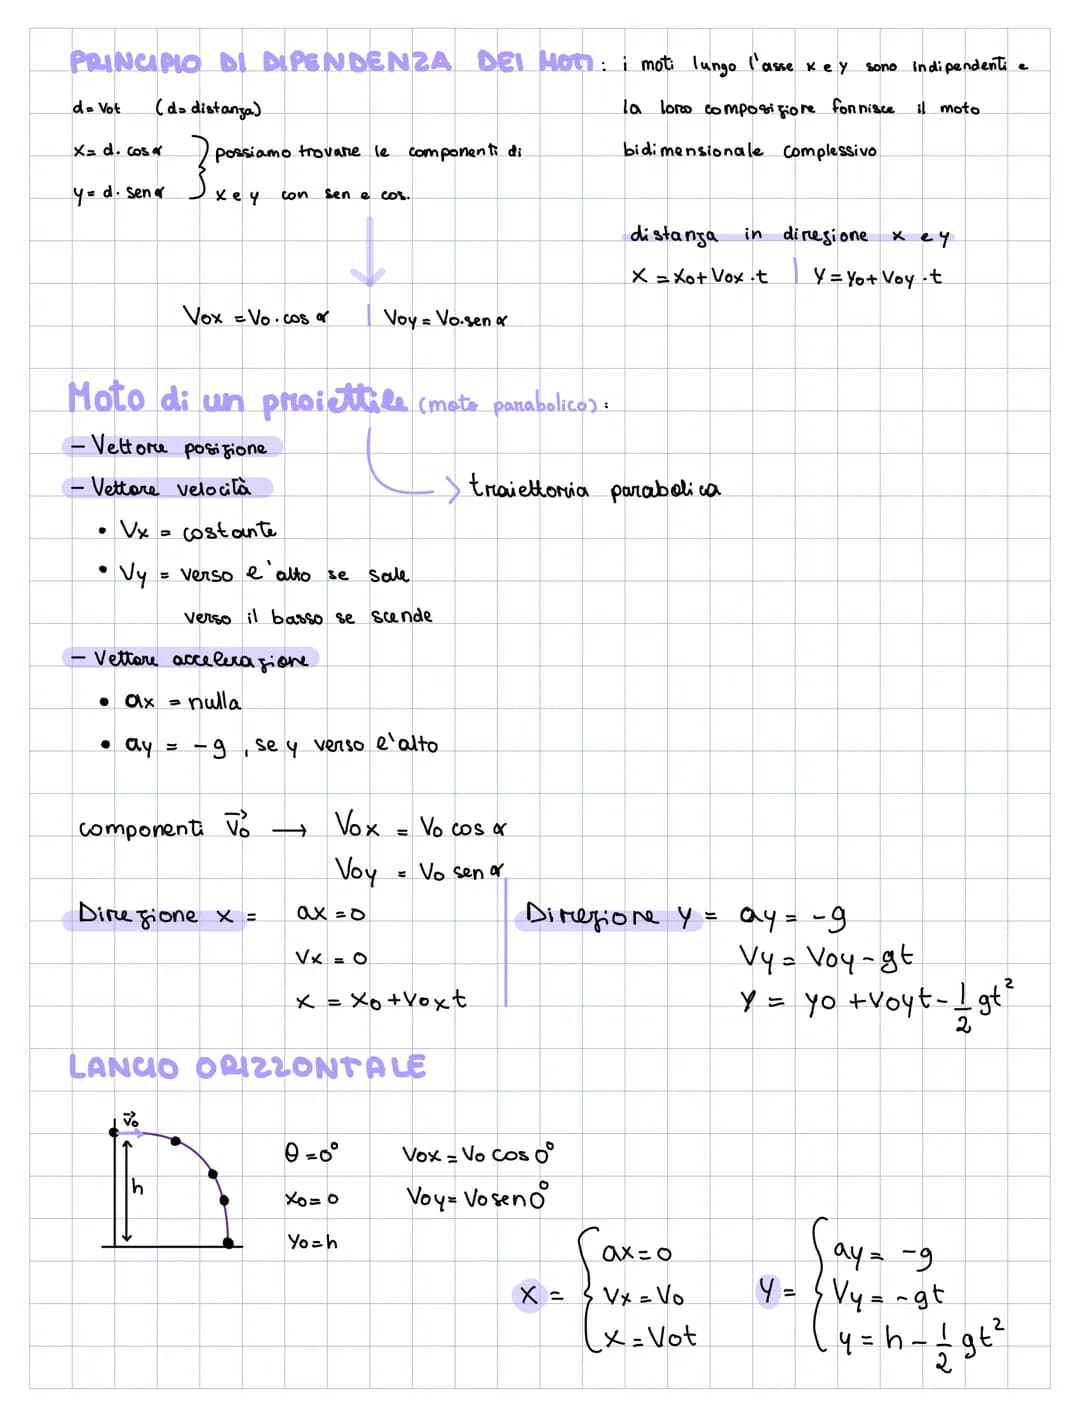 PRINCIPIO DI DIPENDENZA DEI MOTI: i moti lungo l'asse x e y sono indipendenti e
la loro composizione fornisce il moto
bidimensionale complessivo
d = Vot (d = distanza)
x = d. cos α
y = d. sen α
possiamo trovare le componenti di
x e y con sen e cos.
distanza in direzione x e y
X = Xo + Vox · t | Y = Yo + Voy · t
Vox = Vo. cos α | Voy = Vo. sen α
Moto di un proiettile (moto parabolico):
- Vettore posizione
→ traiettoria parabolica
- Vettore velocità
• Vx = costante
• Vy = verso l'alto se sale
verso il basso se scende
- Vettore accelerazione
• ax = nulla
• ay = -g, se y verso l'alto
componenti V⃗o → Vox = Vo cos α
Voy = Vo sen α
Direzione x = ax = 0
Vx = 0
x = Xo + Voxt
Direzione y = ay = -g
Vy = Voy - gt
Y = yo + Voyt - 1/2 gt²
LANCIO ORIZZONTALE
V⃗o
h
θ = 0°
Xo = 0
Yo = h
Vox = Vo cos 0°
Voy = Vo sen 0°
X = { ax = 0
Vx = Vo
x = Vot
Y = { ay = -g
Vy = -gt
y = h - 1/2 gt²